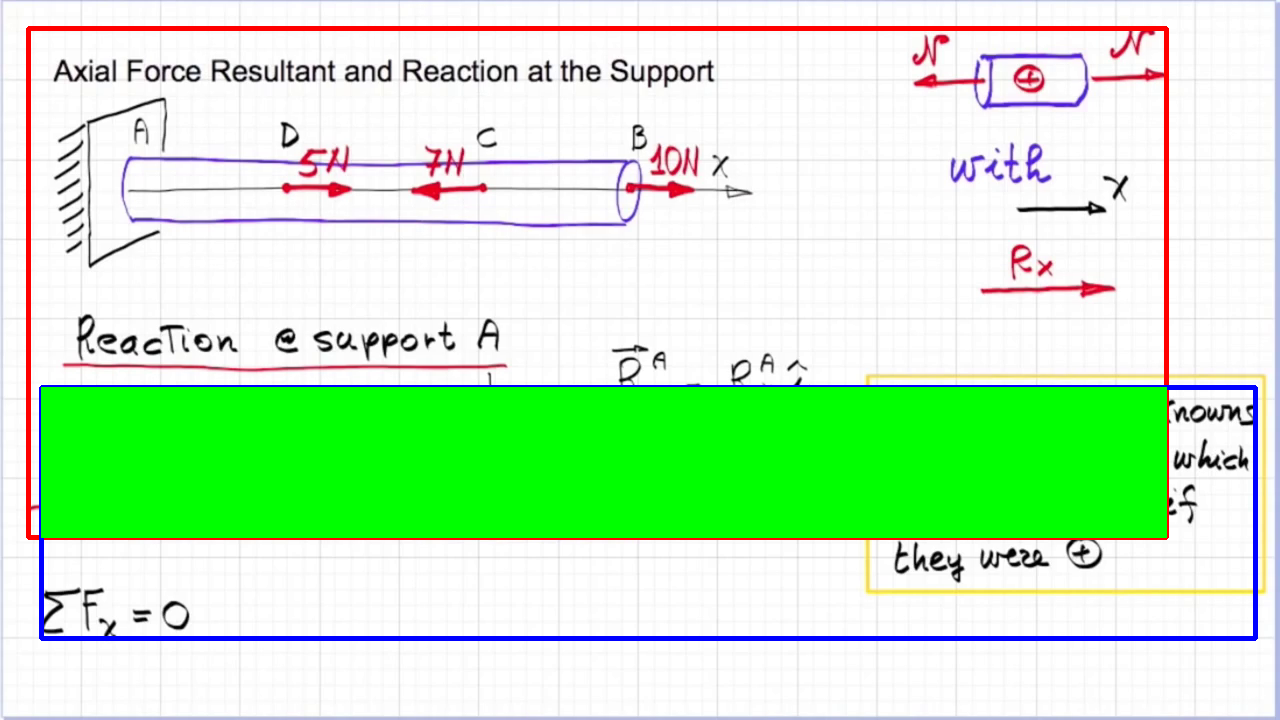 Axial Force Resultant and Reaction at the Support
N N
A D C B
5N 7N 10N x
with
x
Rx
Reaction @ support A
R A = R A î
which
if
they were +
ΣFx = 0